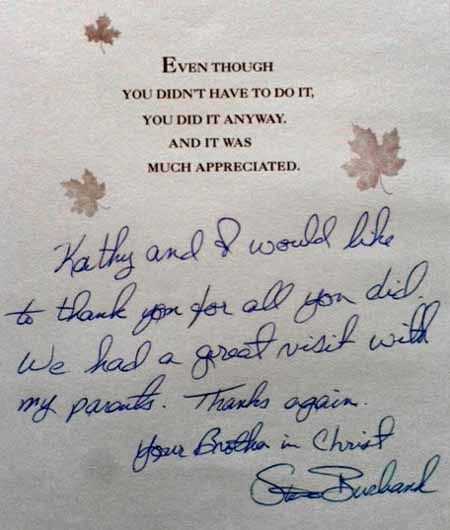 EVEN THOUGH
YOU DIDN'T HAVE TO DO IT,
YOU DID IT ANYWAY.
AND IT WAS
MUCH APPRECIATED.
Kathy and I would like
to thank you for all you did.
We had a great visit with
my parents. Thanks again.
Your Brother in Christ
Steve